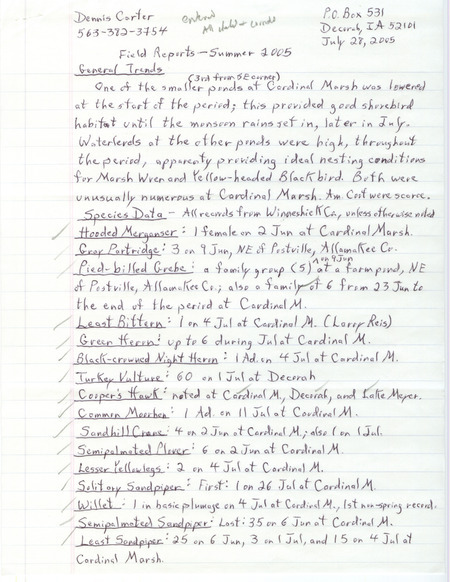 Dennis Carter
entered
P.O. Box 531
563-382-3754
All data + cards
Decorah, IA 52101
July 28, 2005
Field Reports - Summer 2005
General Trends
(3rd from SE corner)
One of the smaller ponds at Cardinal Marsh was lowered
at the start of the period; this provided good shorebird
habitat until the monsoon rains set in, later in July.
Waterlevels at the other ponds were high, throughout
the period, apparently providing ideal nesting conditions
for Marsh Wren and Yellow-headed Blackbird. Both were
unusually numerous at Cardinal Marsh. Am. Coot were scarce.
Species Data - All records from Winneshiek Co, unless otherwise noted
Hooded Merganser: 1 female on 2 Jun at Cardinal Marsh.
Gray Partridge: 3 on 9 Jun, NE of Postville, Allamakee Co.
Pied-billed Grebe: a family group (5) on 9 Jun at a farm pond, NE
of Postville, Allamakee Co.; also a family of 6 from 23 Jun to
the end of the period at Cardinal M.
Least Bittern: 1 on 4 Jul at Cardinal M. (Larry Reis)
Green Heron: up to 6 during Jul at Cardinal M.
Black-crowned Night Heron: 1 Ad. on 4 Jul at Cardinal M.
Turkey Vulture: 60 on 1 Jul at Decorah
Cooper's Hawk: noted at Cardinal M., Decorah, and Lake Meyer.
Common Moorhen: 1 Ad. on 11 Jul at Cardinal M.
Sandhill Crane: 4 on 2 Jun at Cardinal M.; also 1 on 1 Jul.
Semipalmated Plover: 6 on 2 Jun at Cardinal M.
Lesser Yellowlegs: 2 on 4 Jul at Cardinal M.
Solitary Sandpiper: First: 1 on 26 Jul at Cardinal M.
Willet: 1 in basic plumage on 4 Jul at Cardinal M., 1st non-spring record.
Semipalmated Sandpiper: Last: 35 on 6 Jun at Cardinal M.
Least Sandpiper: 25 on 6 Jun, 3 on 1 Jul, and 15 on 4 Jul at
Cardinal Marsh.